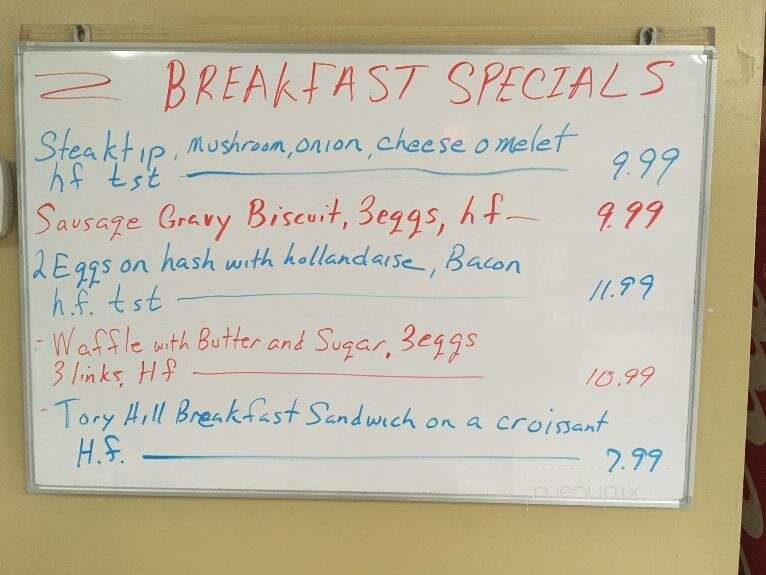 BREAKFAST SPECIALS
Steak tip, mushroom, onion, cheese omelet
hf tst 9.99
Sausage Gravy Biscuit, 3eggs, hf 9.99
2 Eggs on hash with hollandaise, Bacon
h.f. tst 11.99
- Waffle with Butter and Sugar, 3eggs
3 links, Hf 10.99
- Tory Hill Breakfast Sandwich on a croissant
H.f. 7.99
menupix